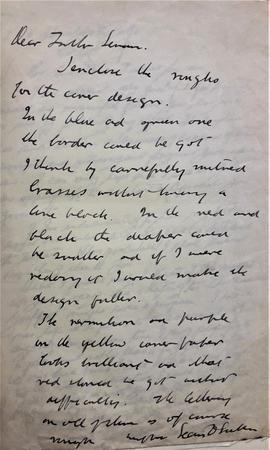 Dear Father
I enclose the roughs
for the cover design.
In the blue and green one
the border could be got
I think by carefully mitred
brasses without having a
line block. In the red and
black the diaper could
be smaller and if I were
redoing it I would make the
design fuller.
The vermilion and purple
on the yellow cover paper
looks brilliant and that
red should be got without
difficulty. The lettering
on all of them is of course
rough